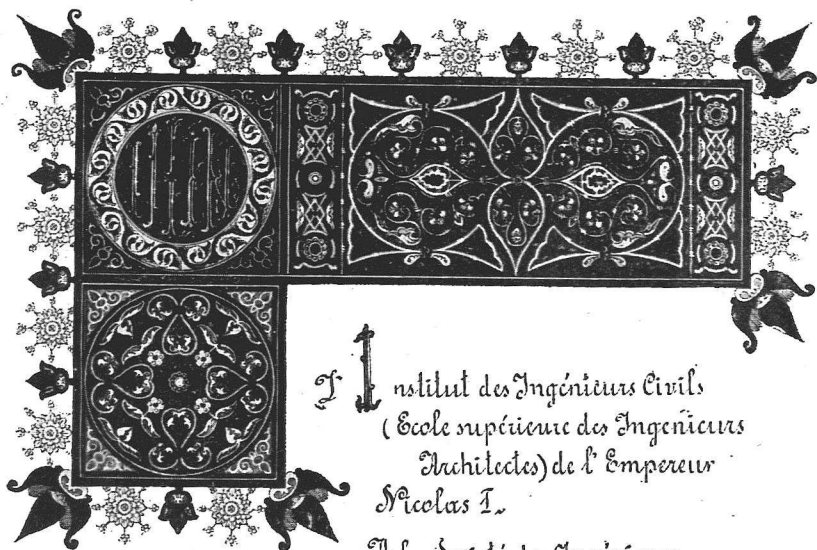 L'Institut des Ingénieurs Civils
(Ecole supérieure des Ingenieurs
Architectes) de l'Empereur
Nicolas I.